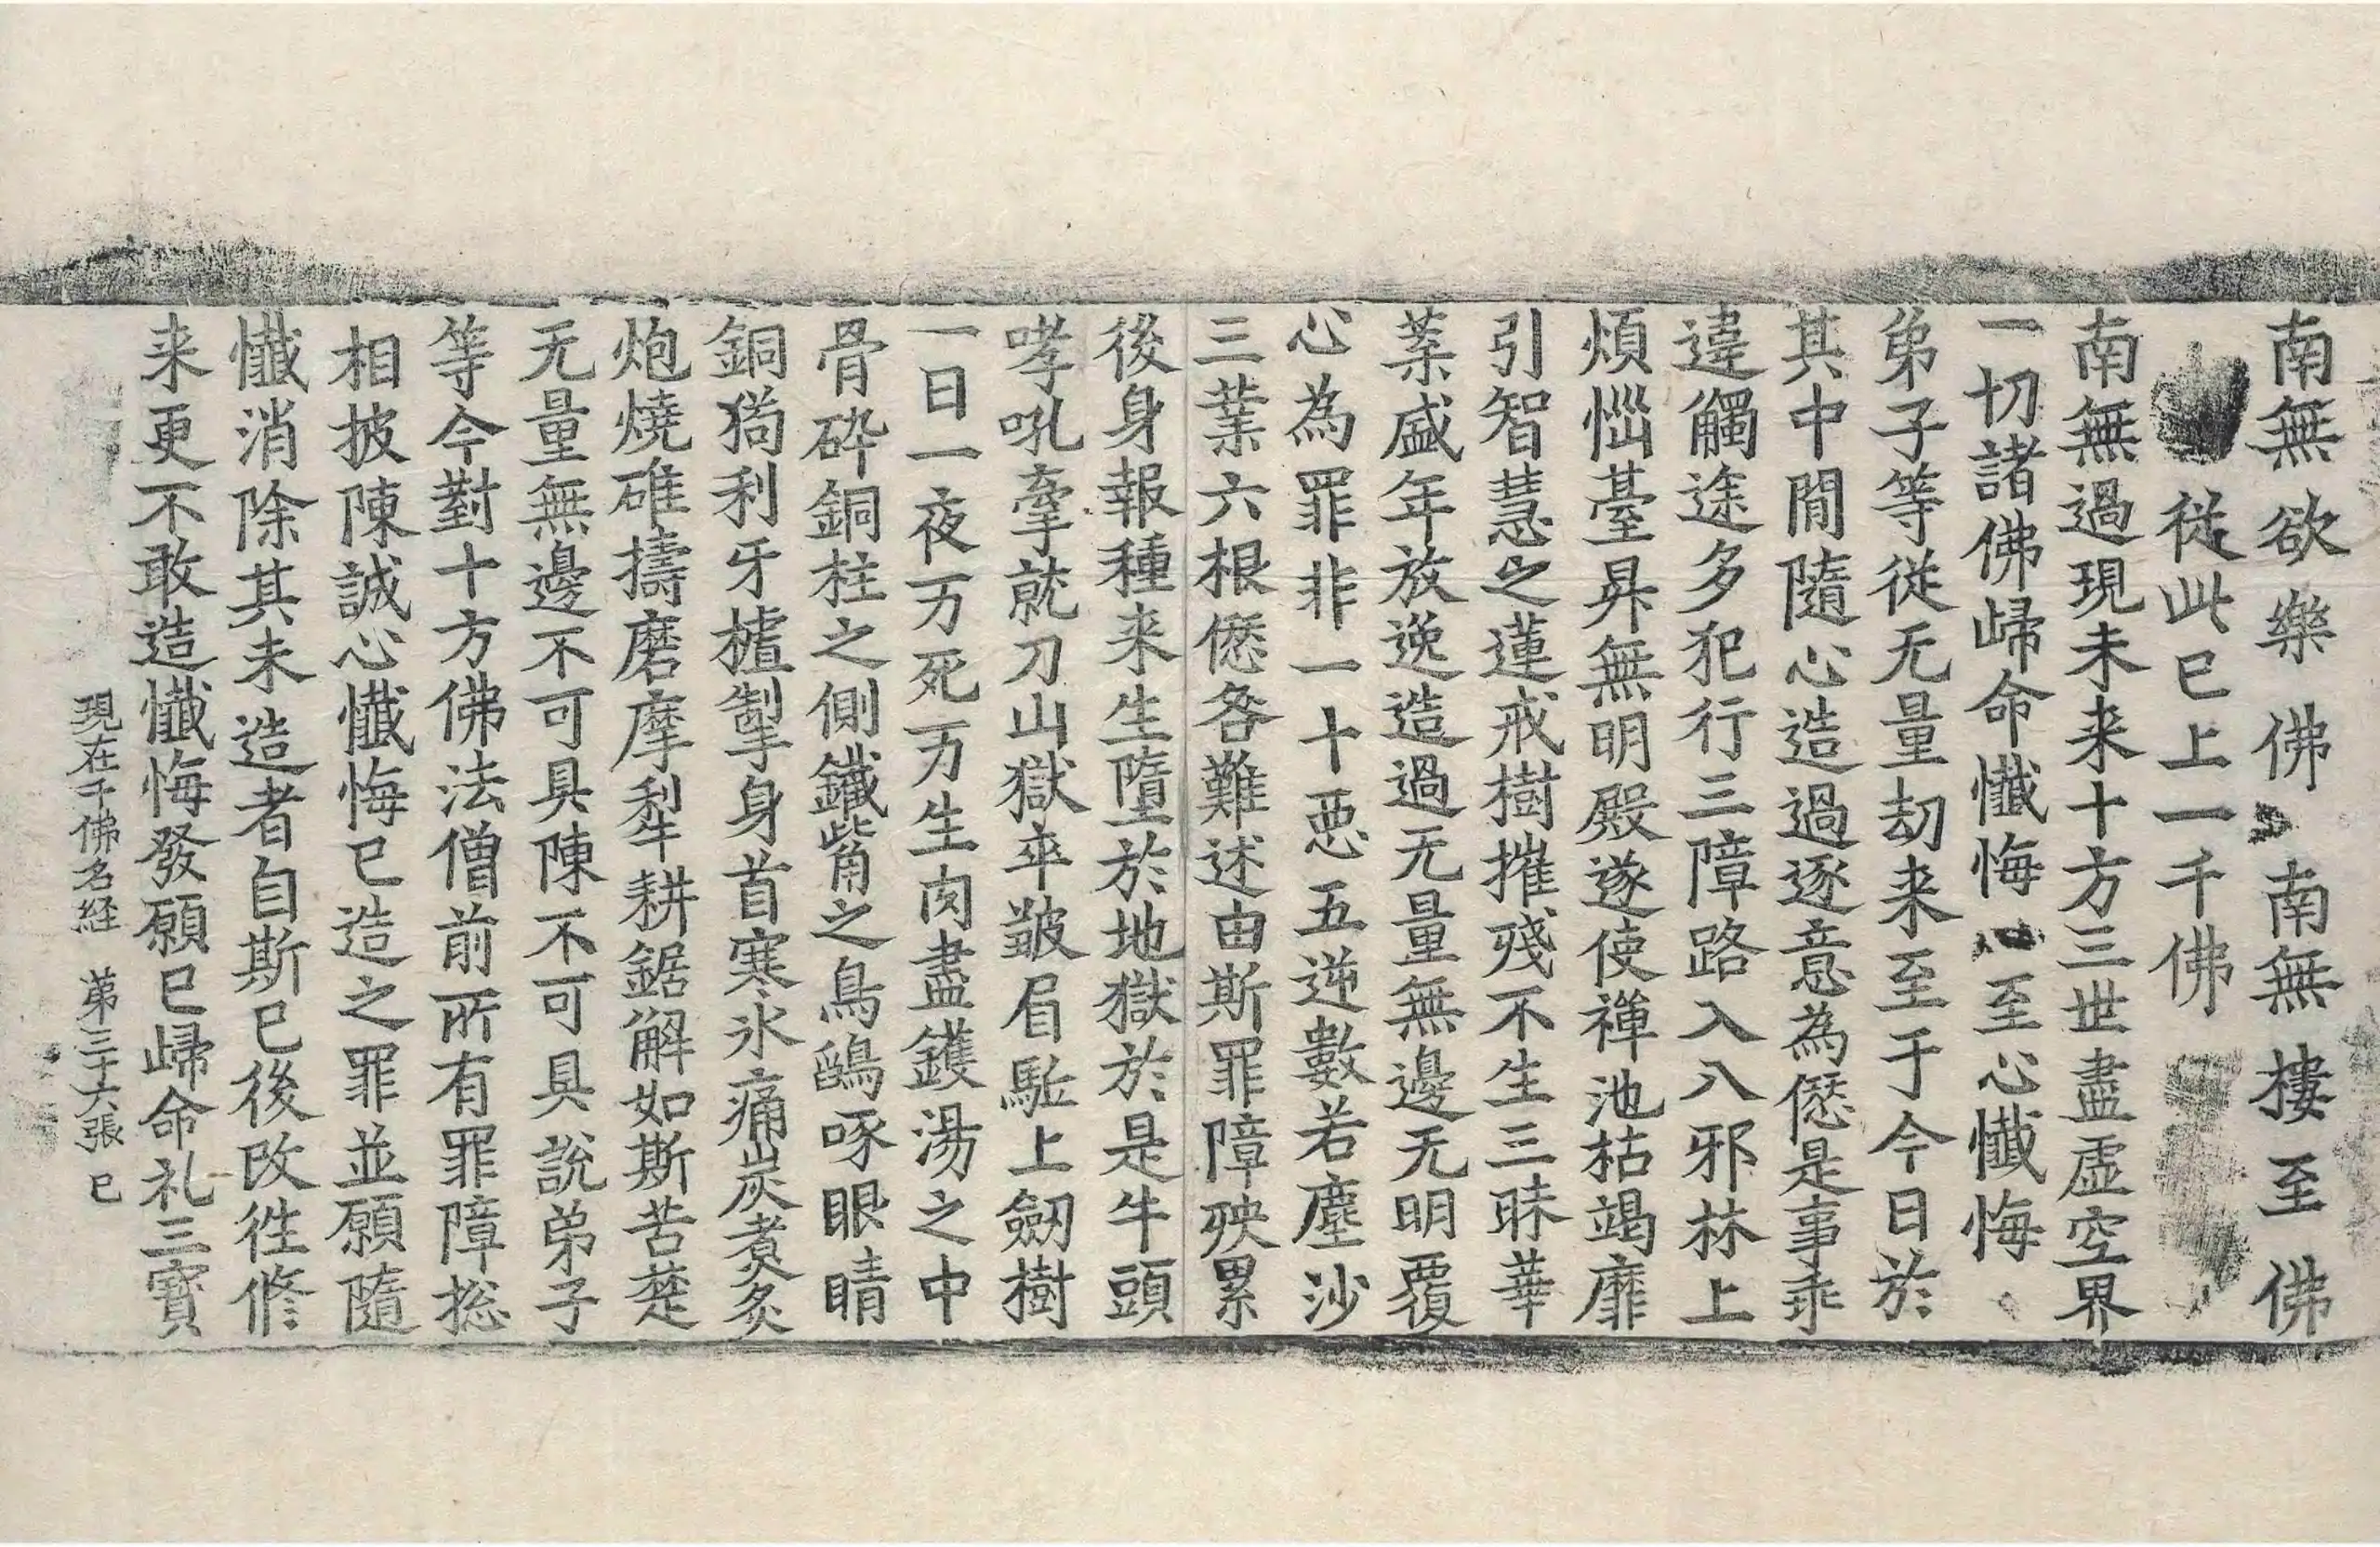 南無欲樂佛 南無樓至佛
從此已上一千佛
南無過現未来十方三世盡虛空界
一切諸佛歸命懺悔 至心懺悔
弟子等從无量劫来至于今日於
其中閒隨心造過逐意為𠎝是事乖
違觸途多犯行三障路入八邪林上
煩惱臺昇無明殿遂使禪池枯竭靡
引智慧之蓮戒樹摧殘不生三昧華
葉盛年放逸造過无量無邊无明覆
心為罪非一十惡五逆數若塵沙
三業六根𠎝咎難述由斯罪障殃累
後身報種来生墮於地獄於是牛頭
哮吼牽就刀山獄卒皺眉駈上劒樹
一日一夜万死万生肉盡鑊湯之中
骨碎銅柱之側鐵觜之鳥鵄啄眼睛
銅猧利牙摣掣身首寒氷痛炭煮炙
炮燒碓擣磨摩犁耕鋸解如斯苦楚
无量無邊不可具陳不可具說弟子
等今對十方佛法僧前所有罪障捴
相披陳誠心懺悔已造之罪並願隨
懺消除其未造者自斯已後改徃修
来更不敢造懺悔發願已歸命礼三寶
現在千佛名経 苐三十六張 已